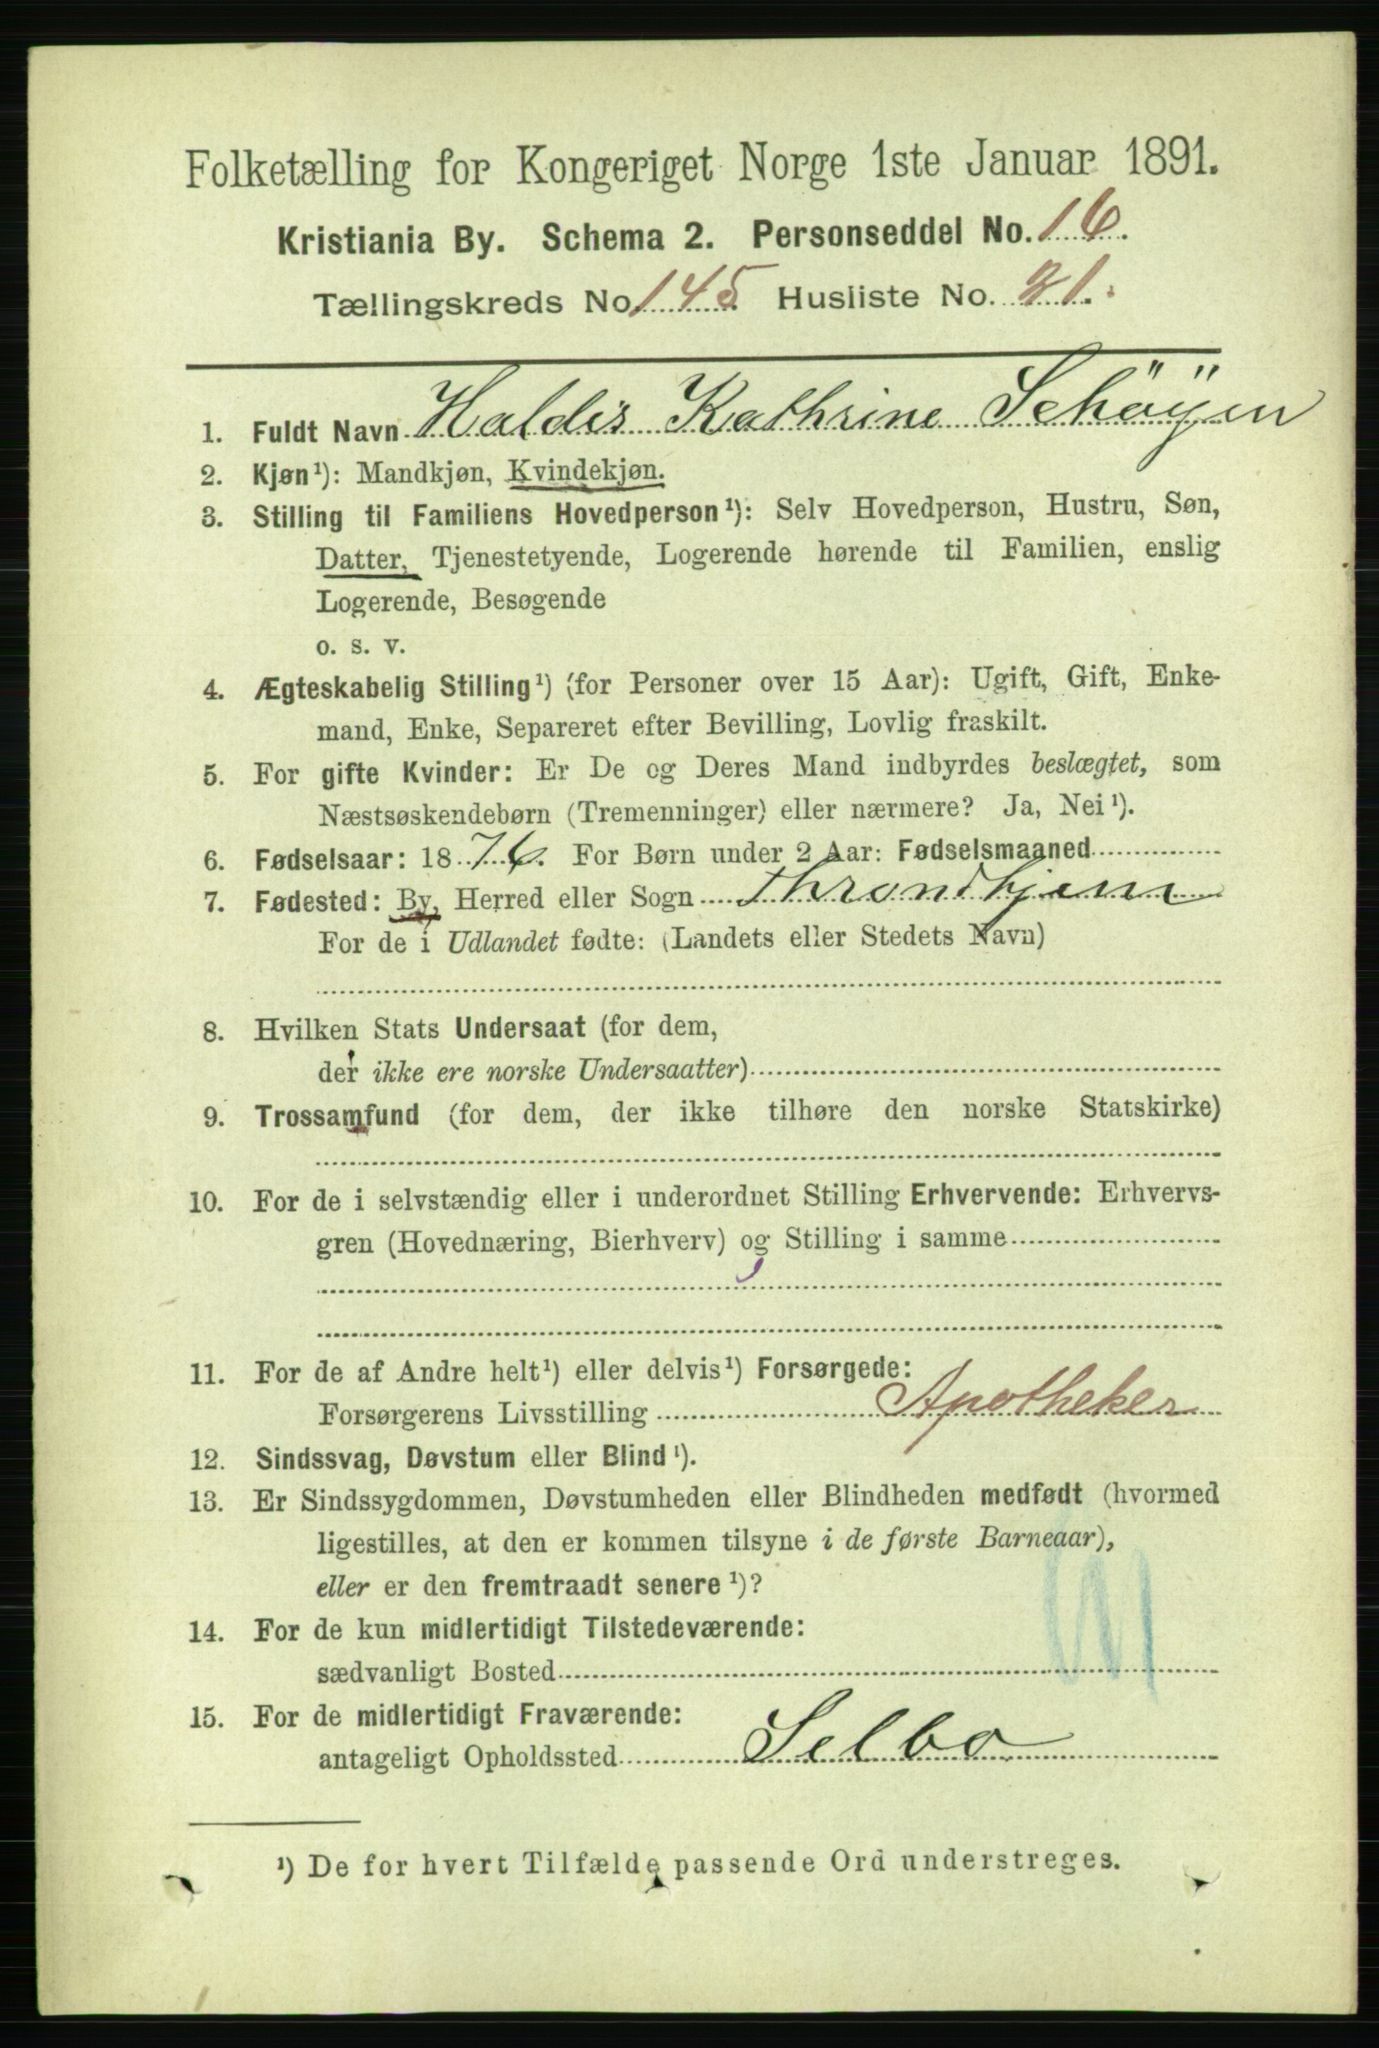 Folketælling for Kongeriget Norge 1ste Januar 1891.
Kristiania By. Schema 2. Personseddel No. 16.
Tællingskreds No 145 Husliste No. 21.
1. Fuldt Navn Haldis Kathrine Schöÿen
2. Kjøn¹): Mandkjøn, Kvindekjøn.
3. Stilling til Familiens Hovedperson¹): Selv Hovedperson, Hustru, Søn,
Datter, Tjenestetyende, Logerende hørende til Familien, enslig
Logerende, Besøgende
o. s. v.
4. Ægteskabelig Stilling¹) (for Personer over 15 Aar): Ugift, Gift, Enke-
mand, Enke, Separeret efter Bevilling, Lovlig fraskilt.
5. For gifte Kvinder: Er De og Deres Mand indbyrdes beslægtet, som
Næstsøskendebørn (Tremenninger) eller nærmere? Ja, Nei¹).
6. Fødselsaar: 1876. For Børn under 2 Aar: Fødselsmaaned
7. Fødested: By, Herred eller Sogn throndhjem
For de i Udlandet fødte: (Landets eller Stedets Navn)
8. Hvilken Stats Undersaat (for dem,
der ikke ere norske Undersaatter)
9. Trossamfund (for dem, der ikke tilhøre den norske Statskirke)
10. For de i selvstændig eller i underordnet Stilling Erhvervende: Erhvervs-
gren (Hovednæring, Bierhverv) og Stilling i samme
11. For de af Andre helt¹) eller delvis¹) Forsørgede:
Forsørgerens Livsstilling Apotheker
12. Sindssvag, Døvstum eller Blind¹).
13. Er Sindssygdommen, Døvstumheden eller Blindheden medfødt (hvormed
ligestilles, at den er kommen tilsyne i de første Barneaar),
eller er den fremtraadt senere¹)?
14. For de kun midlertidigt Tilstedeværende:
sædvanligt Bosted
15. For de midlertidigt Fraværende:
antageligt Opholdssted Selbo
¹) De for hvert Tilfælde passende Ord understreges.